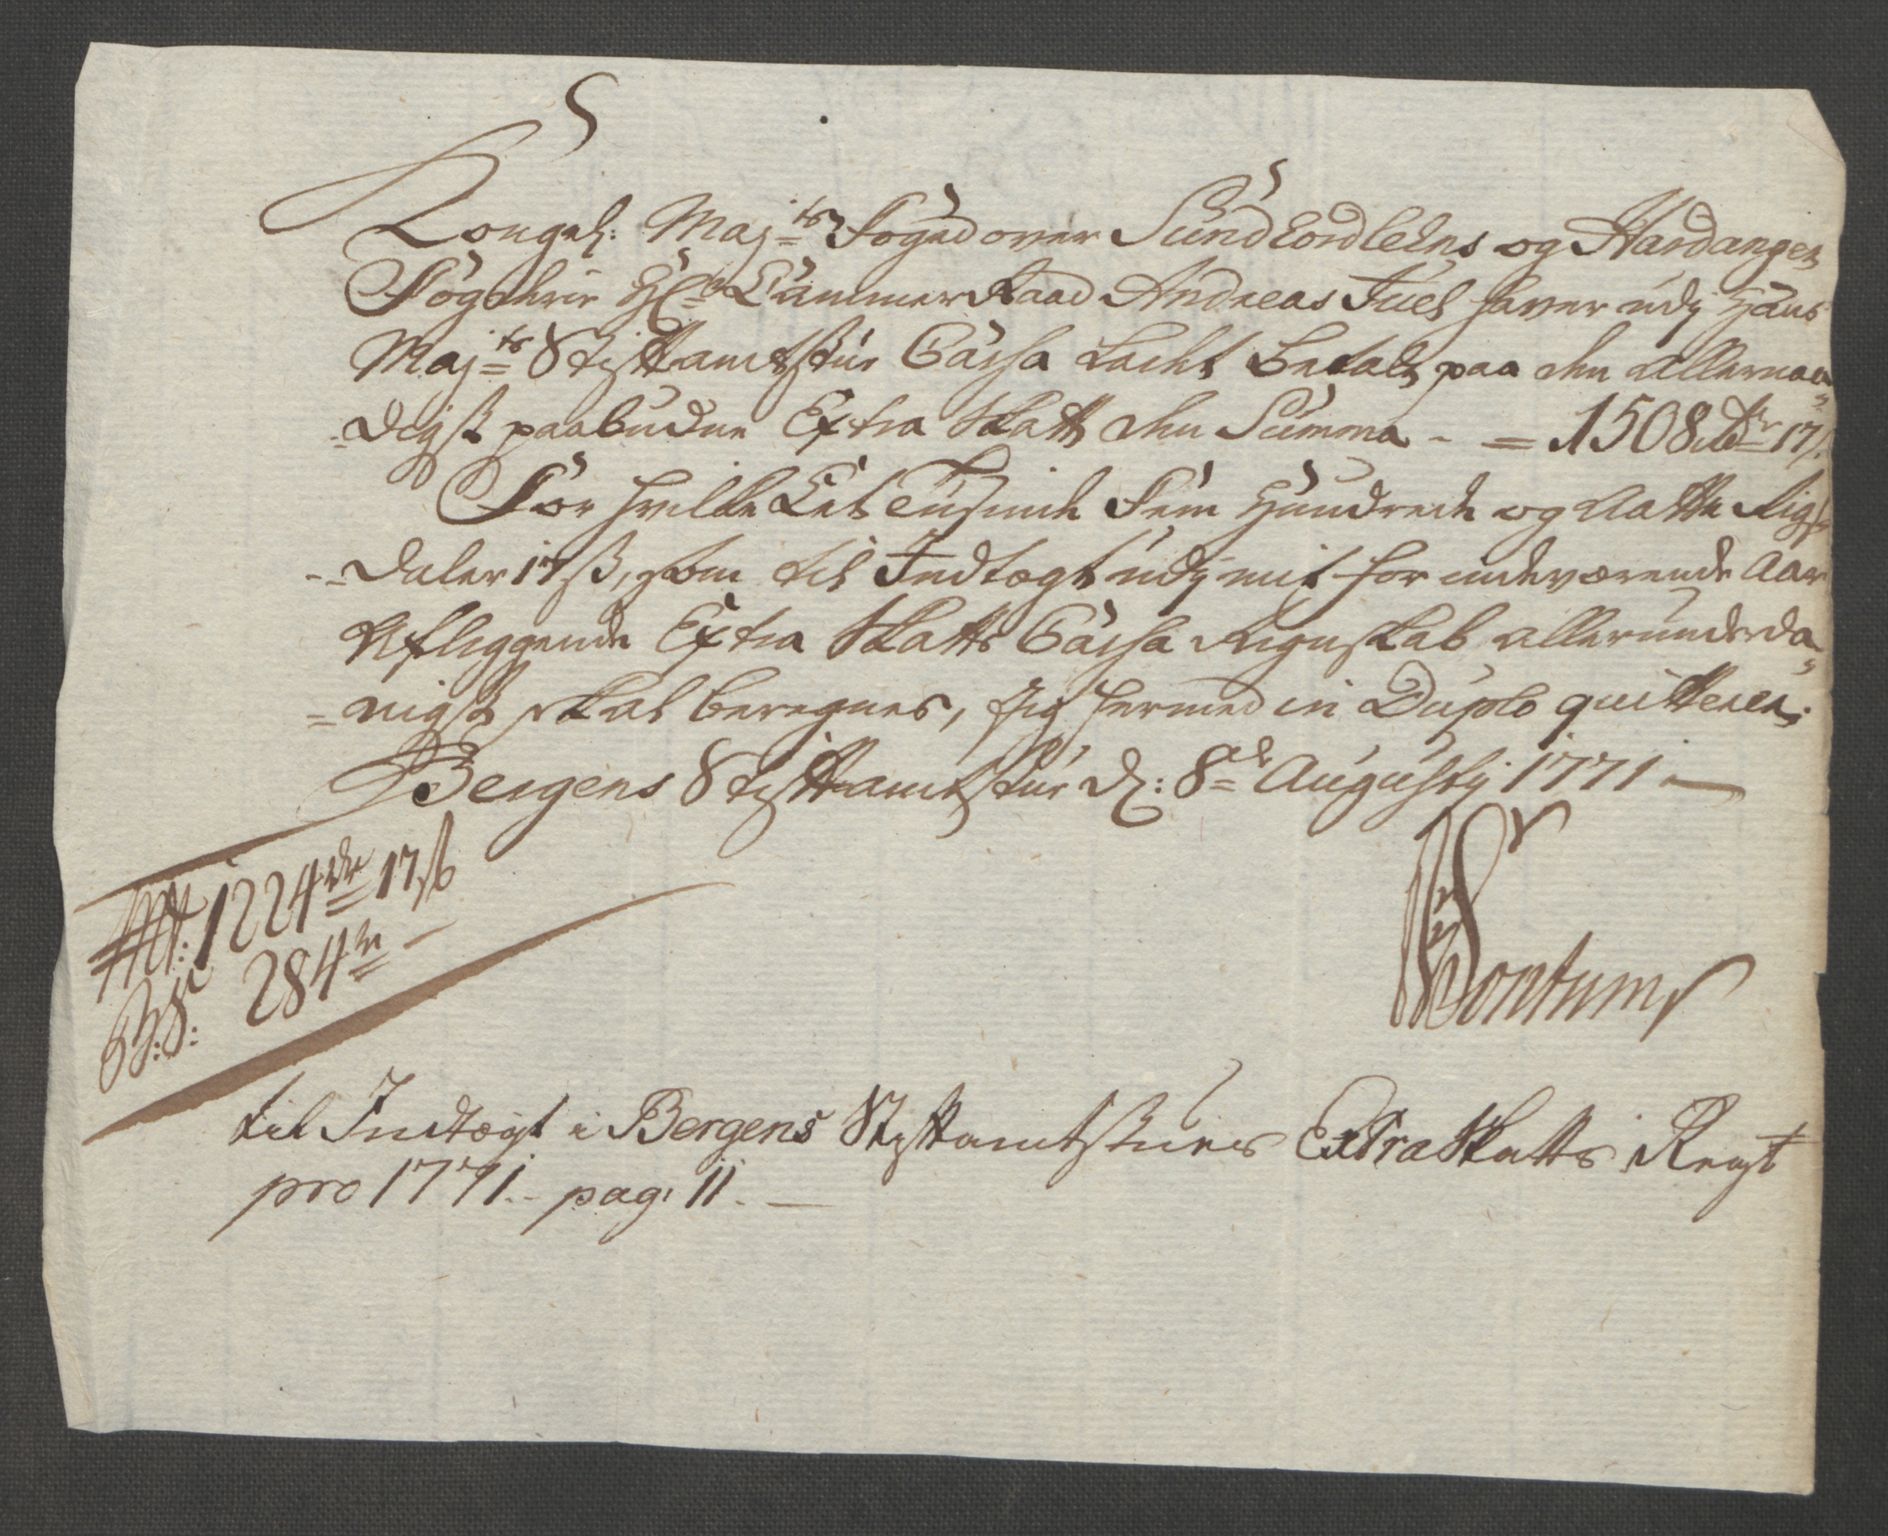 Kongel: Maj:ts Foged over Sundhordlehns og Hardanger
Fogderie Hr Cammer Raad Andreas Juel haver udj Hans
Maj:ts Stiftamtstue Cassa ladet betale paa den Allernaa=
=digst paabudne Extra Skatt den Summa - = 1508 Rdr 17 ß.
For hvilke Eet Tusinde Fem Hundrede og Aatte Rigs
=daler 17 ß, som til Indtægt udj mit for indeværende Aar
Aflæggende Extra Skatts Cassa Regnskab allerunderda=
=nigst skal beregnes, Jeg hermed in Duplo quitterer.
Bergens Stiftamtstue d: 8de Augustij 1771 —
1224 dr 17 ß
284 dr —
Wontum
til Indtægt i Bergens Stiftamtstues Extra Skatts Regst
pro 1771. - pag: 11. —